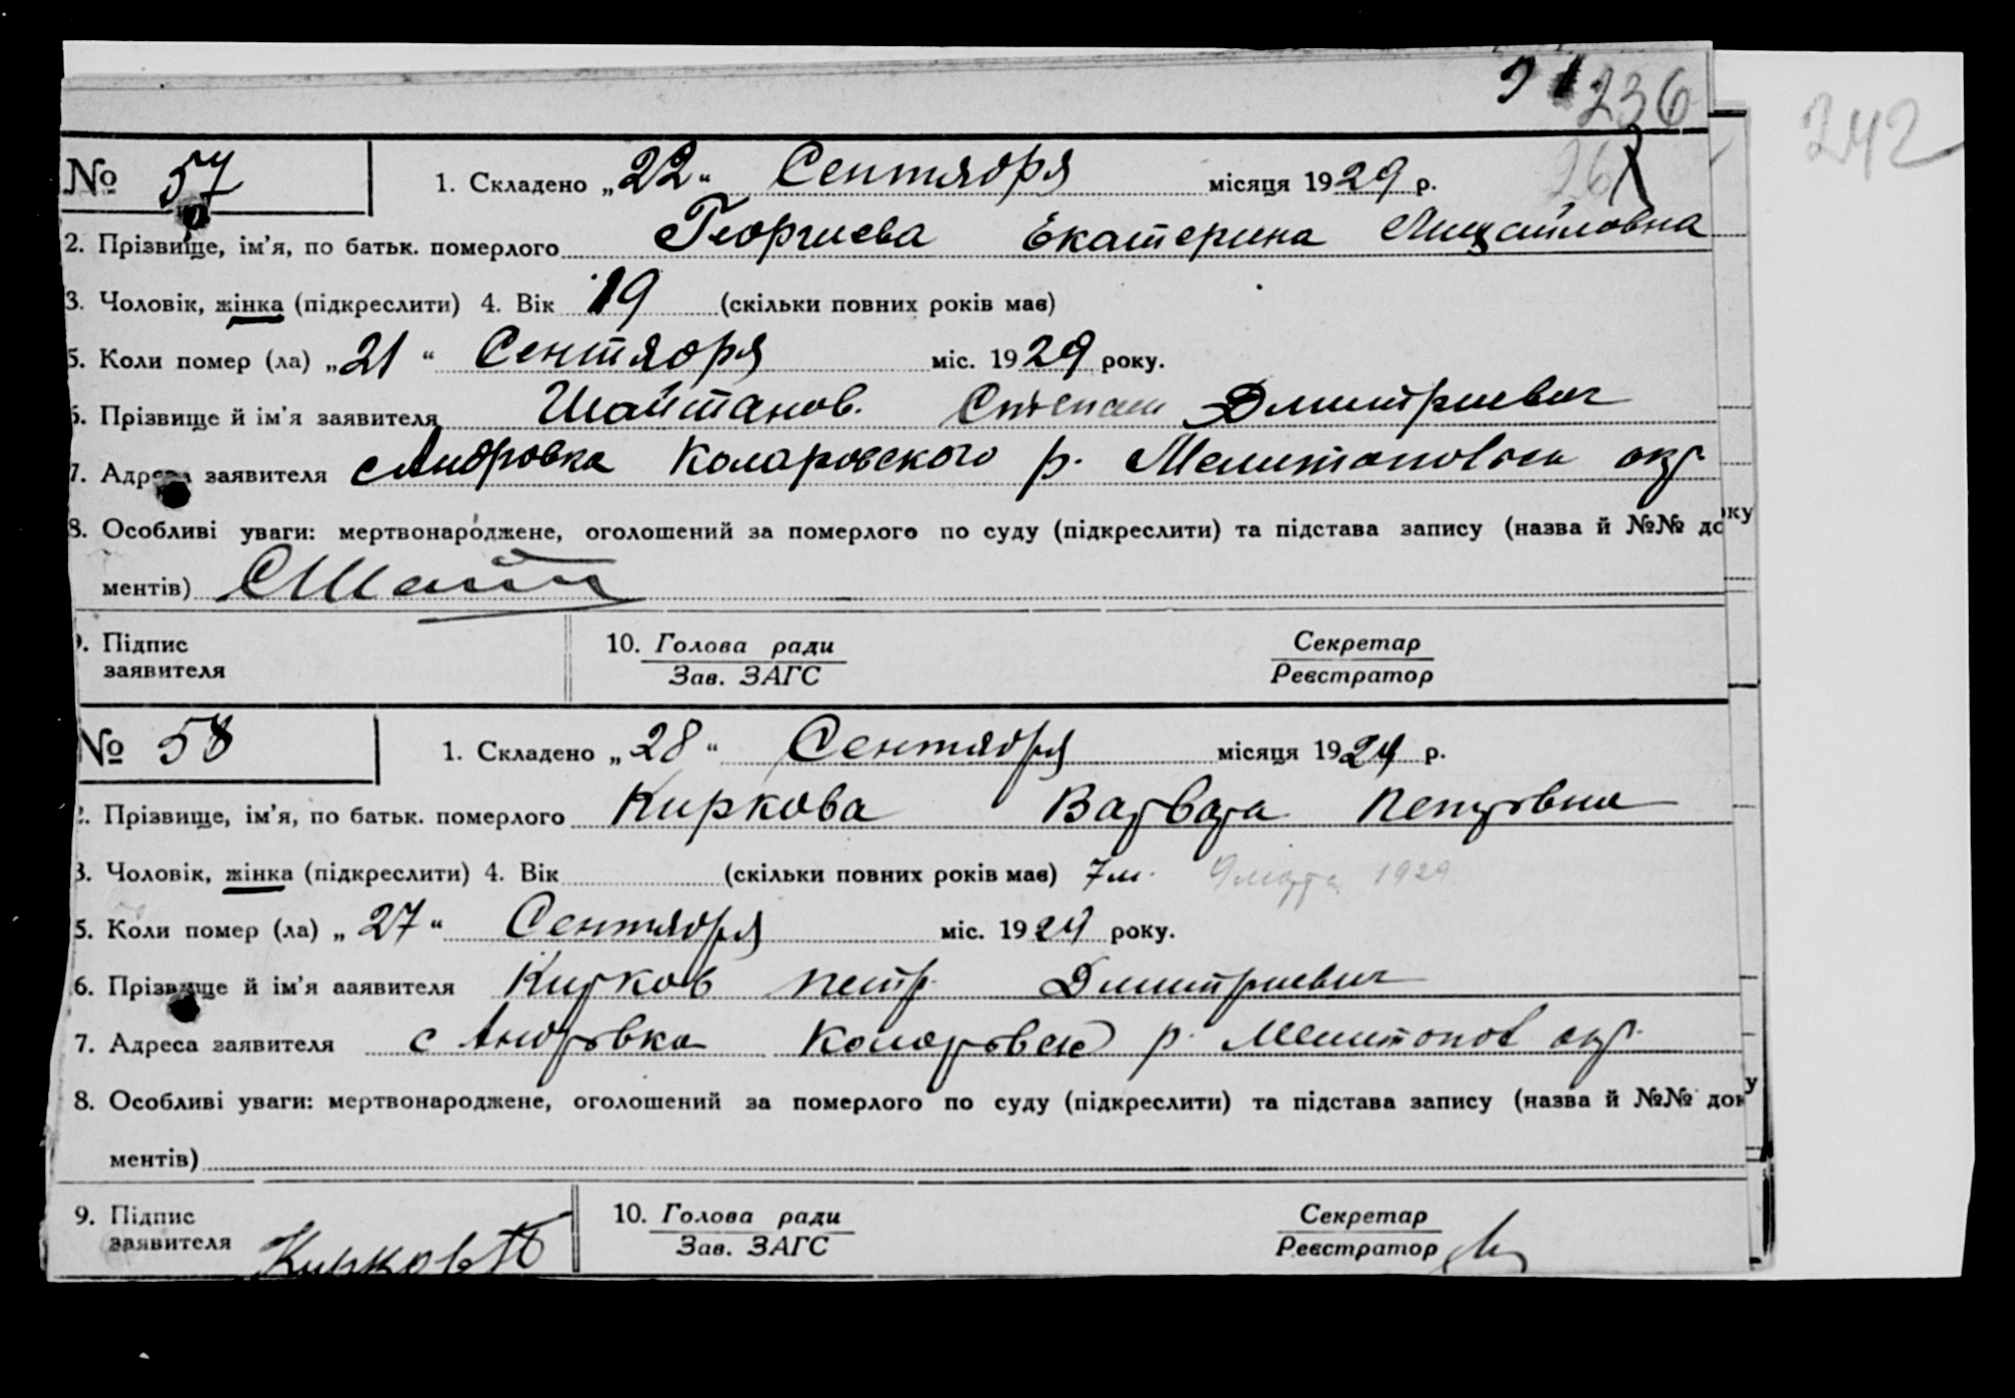 236
242
№ 57 1. Складено „22“ Сентября місяця 1929 р.
2. Прізвище, ім'я, по батьк. померлого Георгиева Екатерина Михайловна
3. Чоловік, жінка (підкреслити) 4. Вік 19 (скільки повних років має)
5. Коли помер (ла) „21“ Сентября міс. 1929 року.
6. Прізвище й ім'я заявителя Шайтанов. Степан Дмитриевич
7. Адреса заявителя с Андровка Коларовского р. Мелитопольск окр
8. Особливі уваги: мертвонароджене, оголошений за померлого по суду (підкреслити) та підстава запису (назва й №№ до
ментів) СШайт
9. Підпис 10. Голова ради Секретар
заявителя Зав. ЗАГС Реєстратор
№ 58 1. Складено „28“ Сентября місяця 1929 р.
2. Прізвище, ім'я, по батьк. померлого Киркова Варвара Петровна
3. Чоловік, жінка (підкреслити) 4. Вік (скільки повних років має) 7м. 9 марта 1929
5. Коли помер (ла) „27“ Сентября міс. 1929 року.
6. Прізвище й ім'я ааявителя Кирков Петр Дмитриевич
7. Адреса заявителя с Андровка Коларовск р. Мелитопол окр.
8. Особливі уваги: мертвонароджене, оголошений за померлого по суду (підкреслити) та підстава запису (назва й №№ док
ментів)
9. Підпис 10. Голова ради Секретар
заявителя Кирков П Зав. ЗАГС Реєстратор